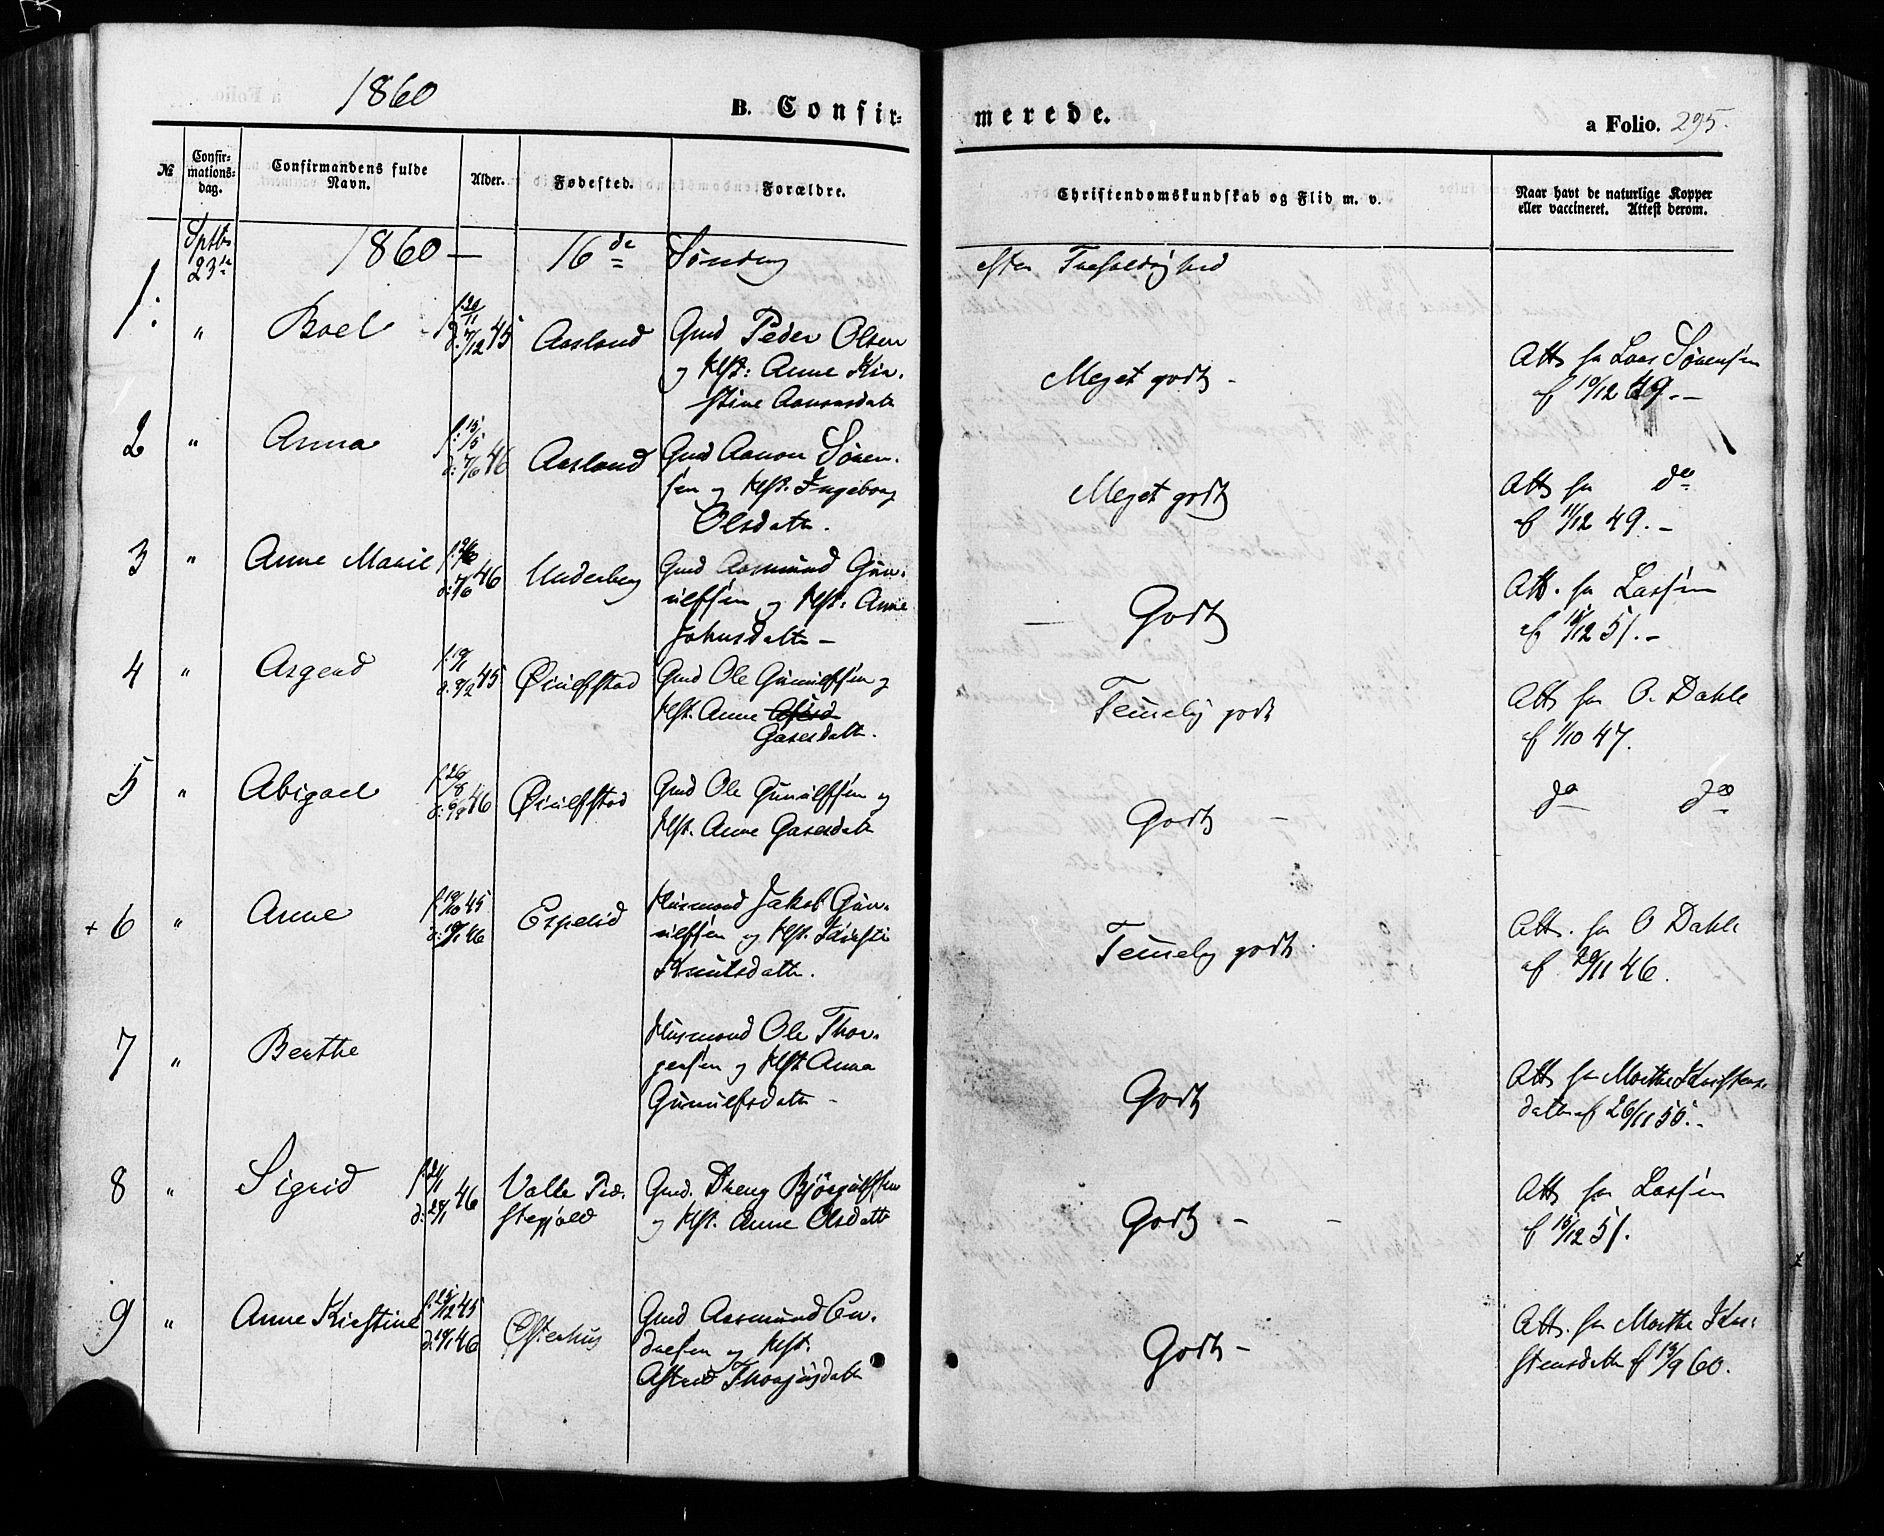 1860
B. Confir-
merede.
a Folio. 295.
№
Confir-
mations-
dag.
Confirmandens fulde
Navn.
Alder.
Fødested.
Forældre.
Christendomskundskab og Flid m. v.
Naar havt de naturlige Kopper
eller vaccineret. Attest derom.
Sptbr 23de 1860 — 16de Søndag efter Trefoldighed
1. " Boel
f. 20/11 d. 7/12 45
Aasland
Gmd Peder Olsen
og Kst: Anne Kir-
stine Aanonsdatt
Meget godt -
Att. fra Lars Sørensen
af 10/12 49. -
2 " Anna
f. 15/5 d. 7/6 46
Aasland
Gmd Aanon Søren-
sen og Kst. Ingeborg
Olsdattr.
Meget godt
Att fra do
af 11/12 49. -
3 " Anne Marie
d. 7/6 46
Underberg
Gmd Aasmund Gun-
ulfsen og Kst: Anne
Johnsdattr -
Godt
Att. fra Lassen
af 15/12 51. -
4 " Asgerd
f. 19/1 d. 9/2 45
Øiulfstad
Gmd Ole Gunulfsen og
Kst. Anne
Garesdattr.
Temelig godt
Att fra O. Dahle
af 1/10 47.
5 " Abigael
f. 26/8 d. 6/9 46
Øiulfstad
Gmd Ole Gunulfsen og
Kst. Anne Garesdattr
Godt -
do do
+ 6 " Anne
f. 19/10 45
d. 19/1 46
Espelid
Husmand Jakob Gun-
ulfsen og Kst. Kirsti
Knutsdattr.
Temelig godt.
Att. fra O Dahle
af 20/11 46.
7 " Berthe
Husmand Ole Thor-
gersen og Kst Anna
Gunulfsdattr -
Godt
Att fra Marthe Kristens-
datter af 26/11 55. -
8 " Sigrid
f. 2/1 d: 24/1 46
Valle Præ-
stegjæld
Gmd. Dreng Bjørgulfsen
og Kst. Anne Olsdattr
Godt - -
Att fra Lassen
af 15/12 51.
9 " Anne Kirstine
f. 25/12 45
d. 19/1 46
Østerhus
Gmd Aasmund En-
dresen og Kst:
Astrid Thorjusdattr
Godt -
Att. fra Marthe Kri-
stensdattr af 13/9 60.